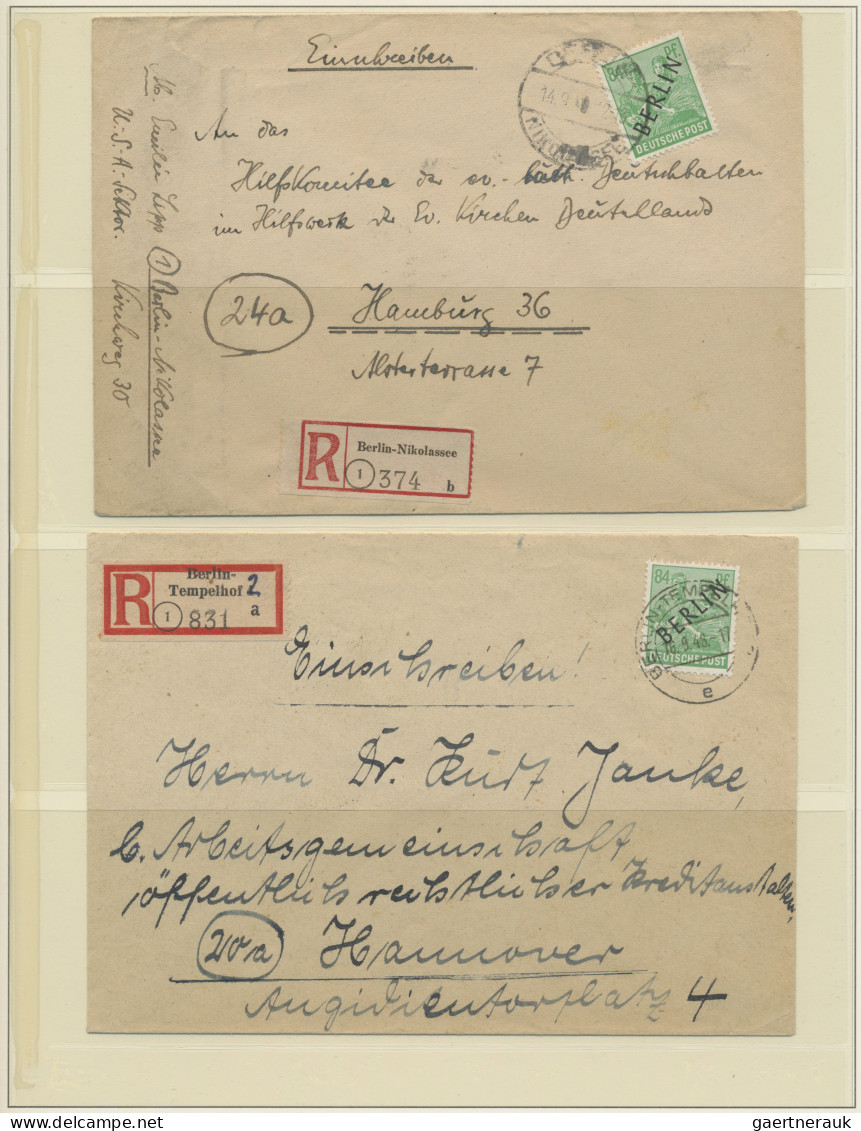 Einschreiben
An das
Hilfskomitee der ev. luth. Deutschbalten
im Hilfswerk der Ev. Kirchen Deutschlands
24a
Hamburg 36
Alsterterrasse 7
(1) Berlin-Nikolassee
U.S.A-Sektor. Kirchweg 30
14.9.4
NIKOLASSEE
84 Pf.
BERLIN
DEUTSCHE POST
R
Berlin-Nikolassee
1 374 b
R
Berlin-
Tempelhof 2
1 831 a
84 Pf.
BERLIN
DEUTSCHE POST
BERLIN-TEMPELH
9.48.-17
e
Einschreiben!
Herrn Dr. Kurt Janke,
b. Arbeitsgemeinschaft
öffentlich rechtlicher Kreditanstalten,
20a Hannover
Ängidientorplatz 4
gaertnerauk